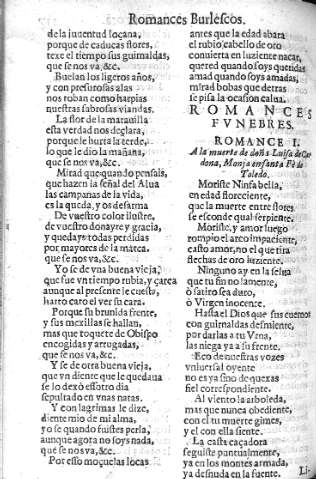 Romances Burlescos.
de la juuentud loçana,
porque de caducas flores,
texe el tiempo sus guirnaldas,
que se nos va, &c.
Buelan los ligeros años,
y con presurosas alas
nos roban como harpias
nuestras sabrosas viandas.
La flor de la marauilla
esta verdad nos declara,
porque le hurta la tarde,
lo que le dio la mañana,
que se nos va, &c.
Mirad que quando pensais,
que hazen la señal del Alua
las campanas de la vida,
es la queda, y os desarma
De vuestro color ilustre,
de vuestro donayre y gracia,
y quedays todas perdidas
por mayores de la marca.
que se nos va, &c.
Yo se de vna buena vieja,
que fue vn tiempo rubia, y çarca
aunque al presente le cuesta,
harto caro el ver su cara.
Porque su brunida frente,
y sus mexillas se hallan,
mas que roquete de Obispo
encogidas y arrugadas,
que se nos va, &c.
Y se de otra buena vieja,
que vn diente que le quedaua
se lo dexò essotro dia
sepultado en vnas natas.
Y con lagrimas le dize,
diente mio de mi alma,
yo se quando fuistes perla,
aunque agora no soys nada,
que se nos va, &c.
Por esso moçuelas locas
antes que la edad abara
el rubio cabello de oro
conuierta en luziente nacar,
quered quando soys queridas
amad quando soys amadas,
mirad bobas que detras
se pisa la ocasion calua.
ROMANCES
FVNEBRES.
ROMANCE I.
A la muerte de doña Luisa de Car-
dona, Monja en santa Fè de
Toledo.
Moriste Ninfa bella,
en edad floreciente,
que la muerte entre flores
se esconde qual serpiente.
Moriste, y amor luego
rompio el arco impaciente,
casto amor, no el que tira
flechas de oro luziente.
Ninguno ay en la selua
que tu fin no lamente,
ò satiro sea duro,
ò Virgen inocente.
Hasta el Dios que sus cuernos
con guirnaldas desmiente,
por darlas a tu Vrna,
las niega ya a su frente.
Eco de nuestras vozes
vniuersal oyente
no es ya sino de quexas
fiel correspondiente.
Al viento la arboleda,
mas que nunca obediente,
con el tu muerte gimes,
y el con ella siente.
La casta caçadora
seguiste puntualmente,
ya en los montes armada,
ya desnuda en la fuente.
Li-